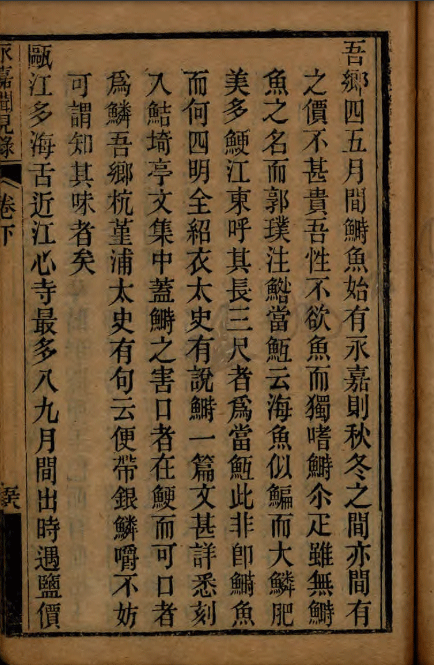 吾鄉四五月間鰣魚始有永嘉則秋冬之間亦間有
之價不甚貴吾性不欲魚而獨嗜鰣尒疋雖無鰣
魚之名而郭璞注鮥當魱云海魚似鯿而大鱗肥
美多鯁江東呼其長三尺者爲當魱此非卽鰣魚
而何四明全紹衣太史有說鰣一篇文甚詳悉刻
入鮚埼亭文集中蓋鰣之害口者在鯁而可口者
爲鱗吾鄉杭堇浦太史有句云便帶銀鱗嚼不妨
可謂知其味者矣
甌江多海舌近江心寺最多八九月間出時遇鹽價
永嘉聞見錄
卷下